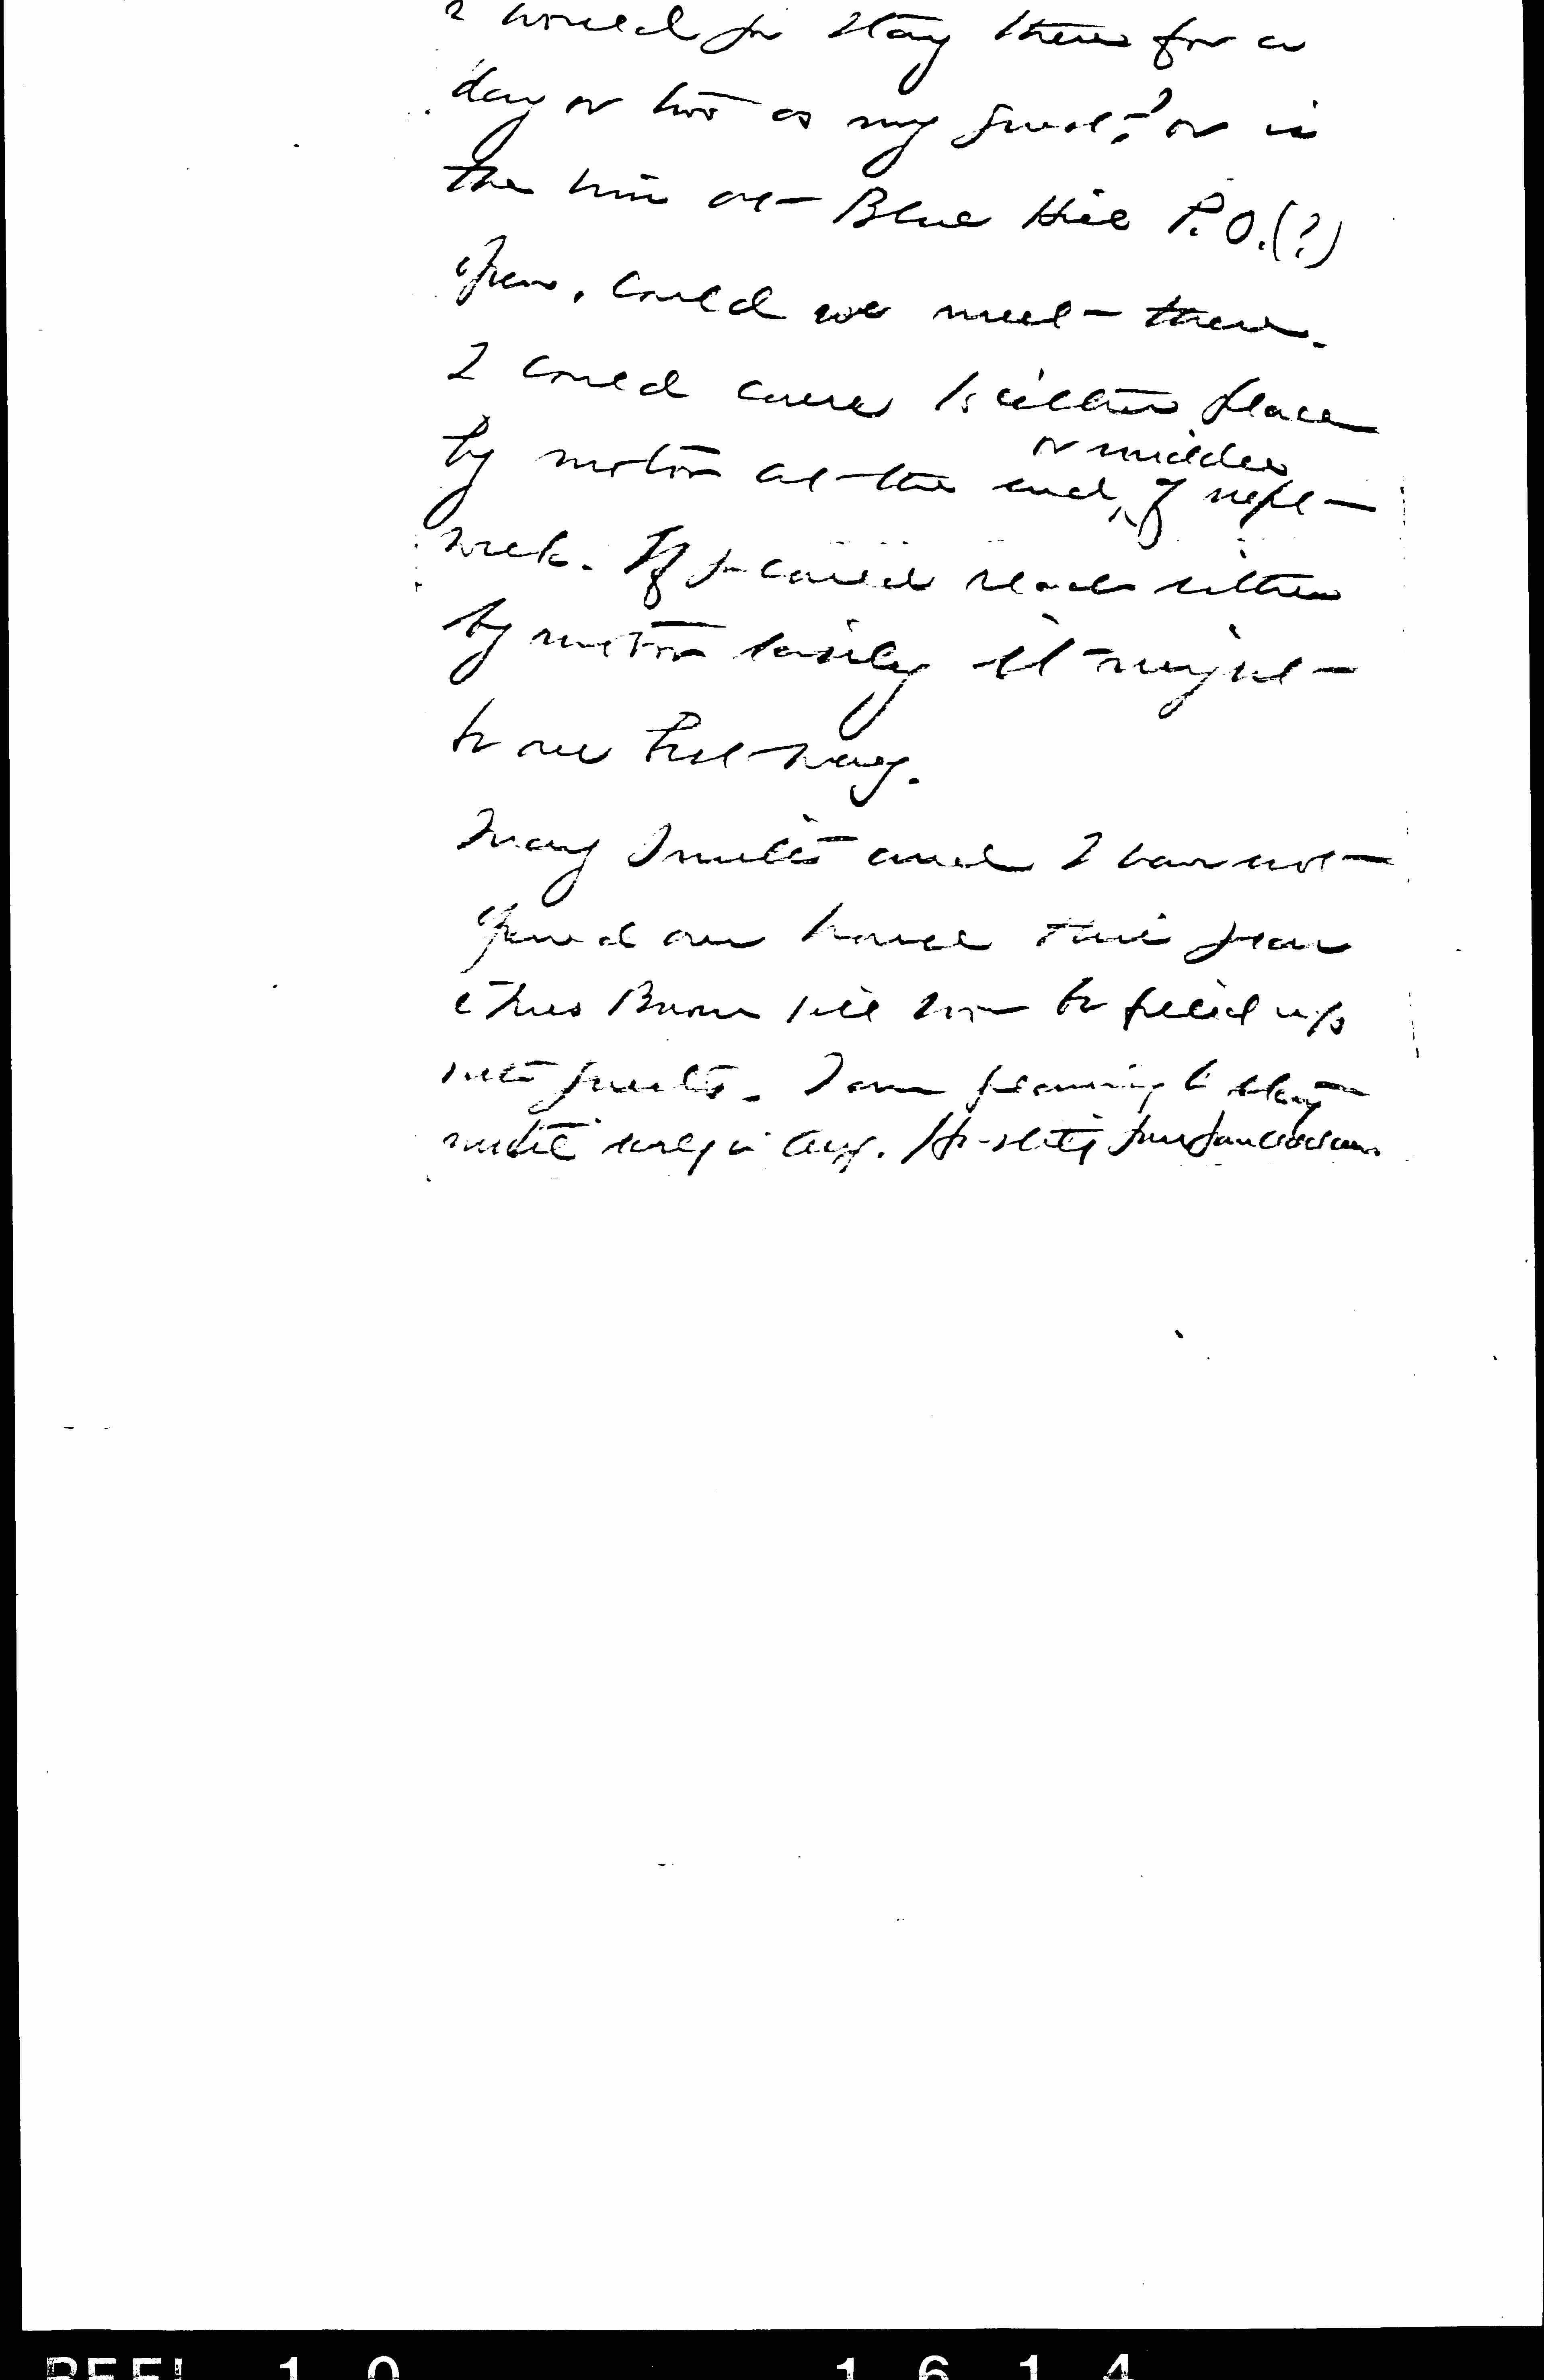 & would you stay there for a
day or two as my guest? or is
the Inn at Blue Hill P.O. (?)
open. Could we meet there.
I could come to either place
by motor at the end, or middle of next
week. If you could reach either
by motor easily it might
be our best way.
Mary Smith and I have not
opened our house this year
& this will soon be filled up
with guests. I am planning to stay
until early in Aug.
REEL 10 1614